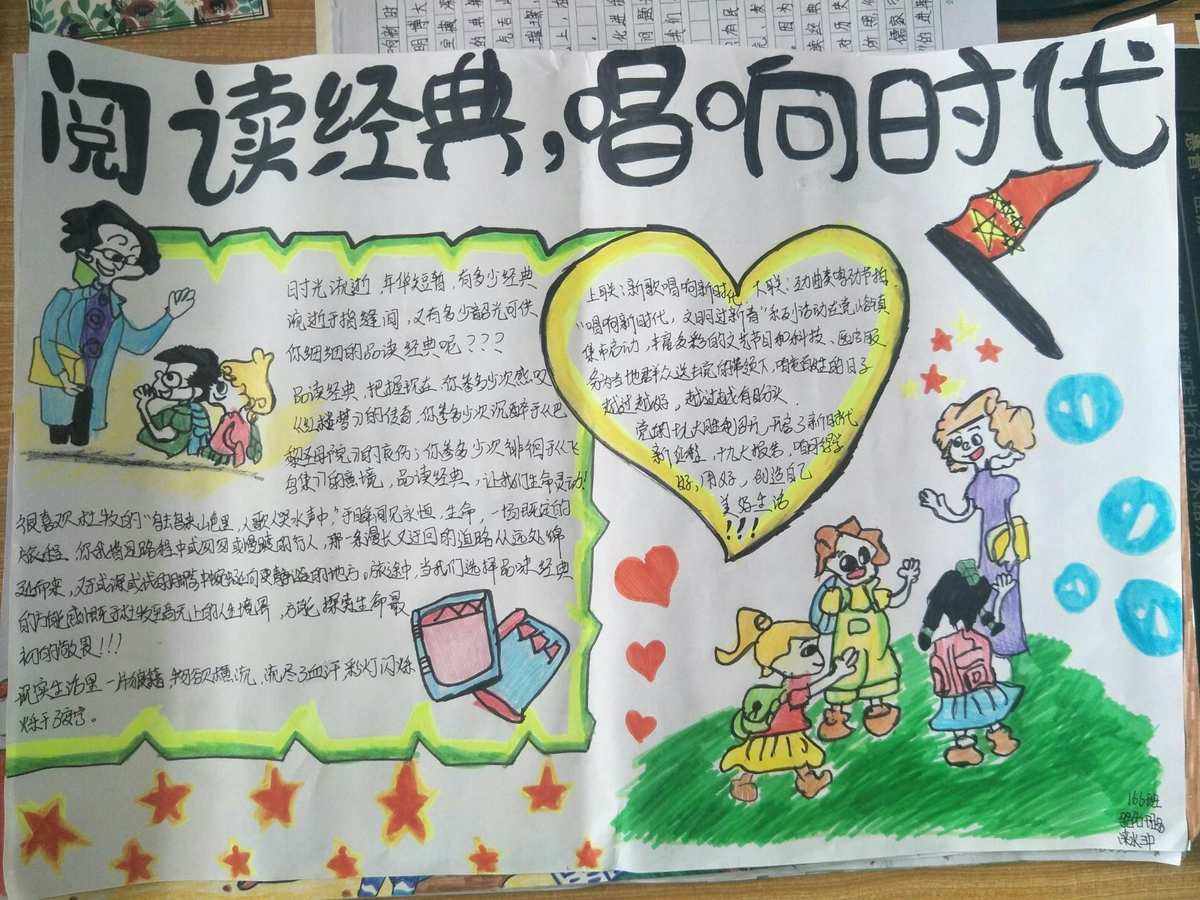 阅读经典，唱响时代
时光流逝，年华短暂，有多少经典
流逝于指缝间，又有多少韶光可供
你细细的品读经典呢？？？
品读经典，把握现在，你曾多少次感叹
《红楼梦》的传奇，你曾多少次沉醉于《巴
黎圣母院》的哀伤；你曾多少次徘徊于《飞
鸟集》的意境，品读经典，让我们生命灵动！
很喜欢杜牧的“鸟去鸟来山色里，人歌人哭水声中”于瞬间见永恒，生命，一场既定的
旅程，你我皆是路程中或匆匆或慢慢的行人，那一条漫长又迂回的道路从远处绵
延而来，又
的地方。旅途中，当我们选择品味经典
的人生境界，方能探索生命最
初的敬畏！！！
现实生活里一片狼藉，
流尽了血汗，彩灯闪烁
上联：新歌唱响新时代，下联：动曲奏鸣动节拍。
“唱响新时代，文明过新春”系列活动在
集市启动，丰富多彩的文艺节目和科技、医疗服
务为当地群众送去
的日子
越过越好，越过越有盼头
党的十九大胜利召开，开启了新时代
新征程，十九大报告，咱们学
好，用好，创造自己
美好生活
！！！
166班